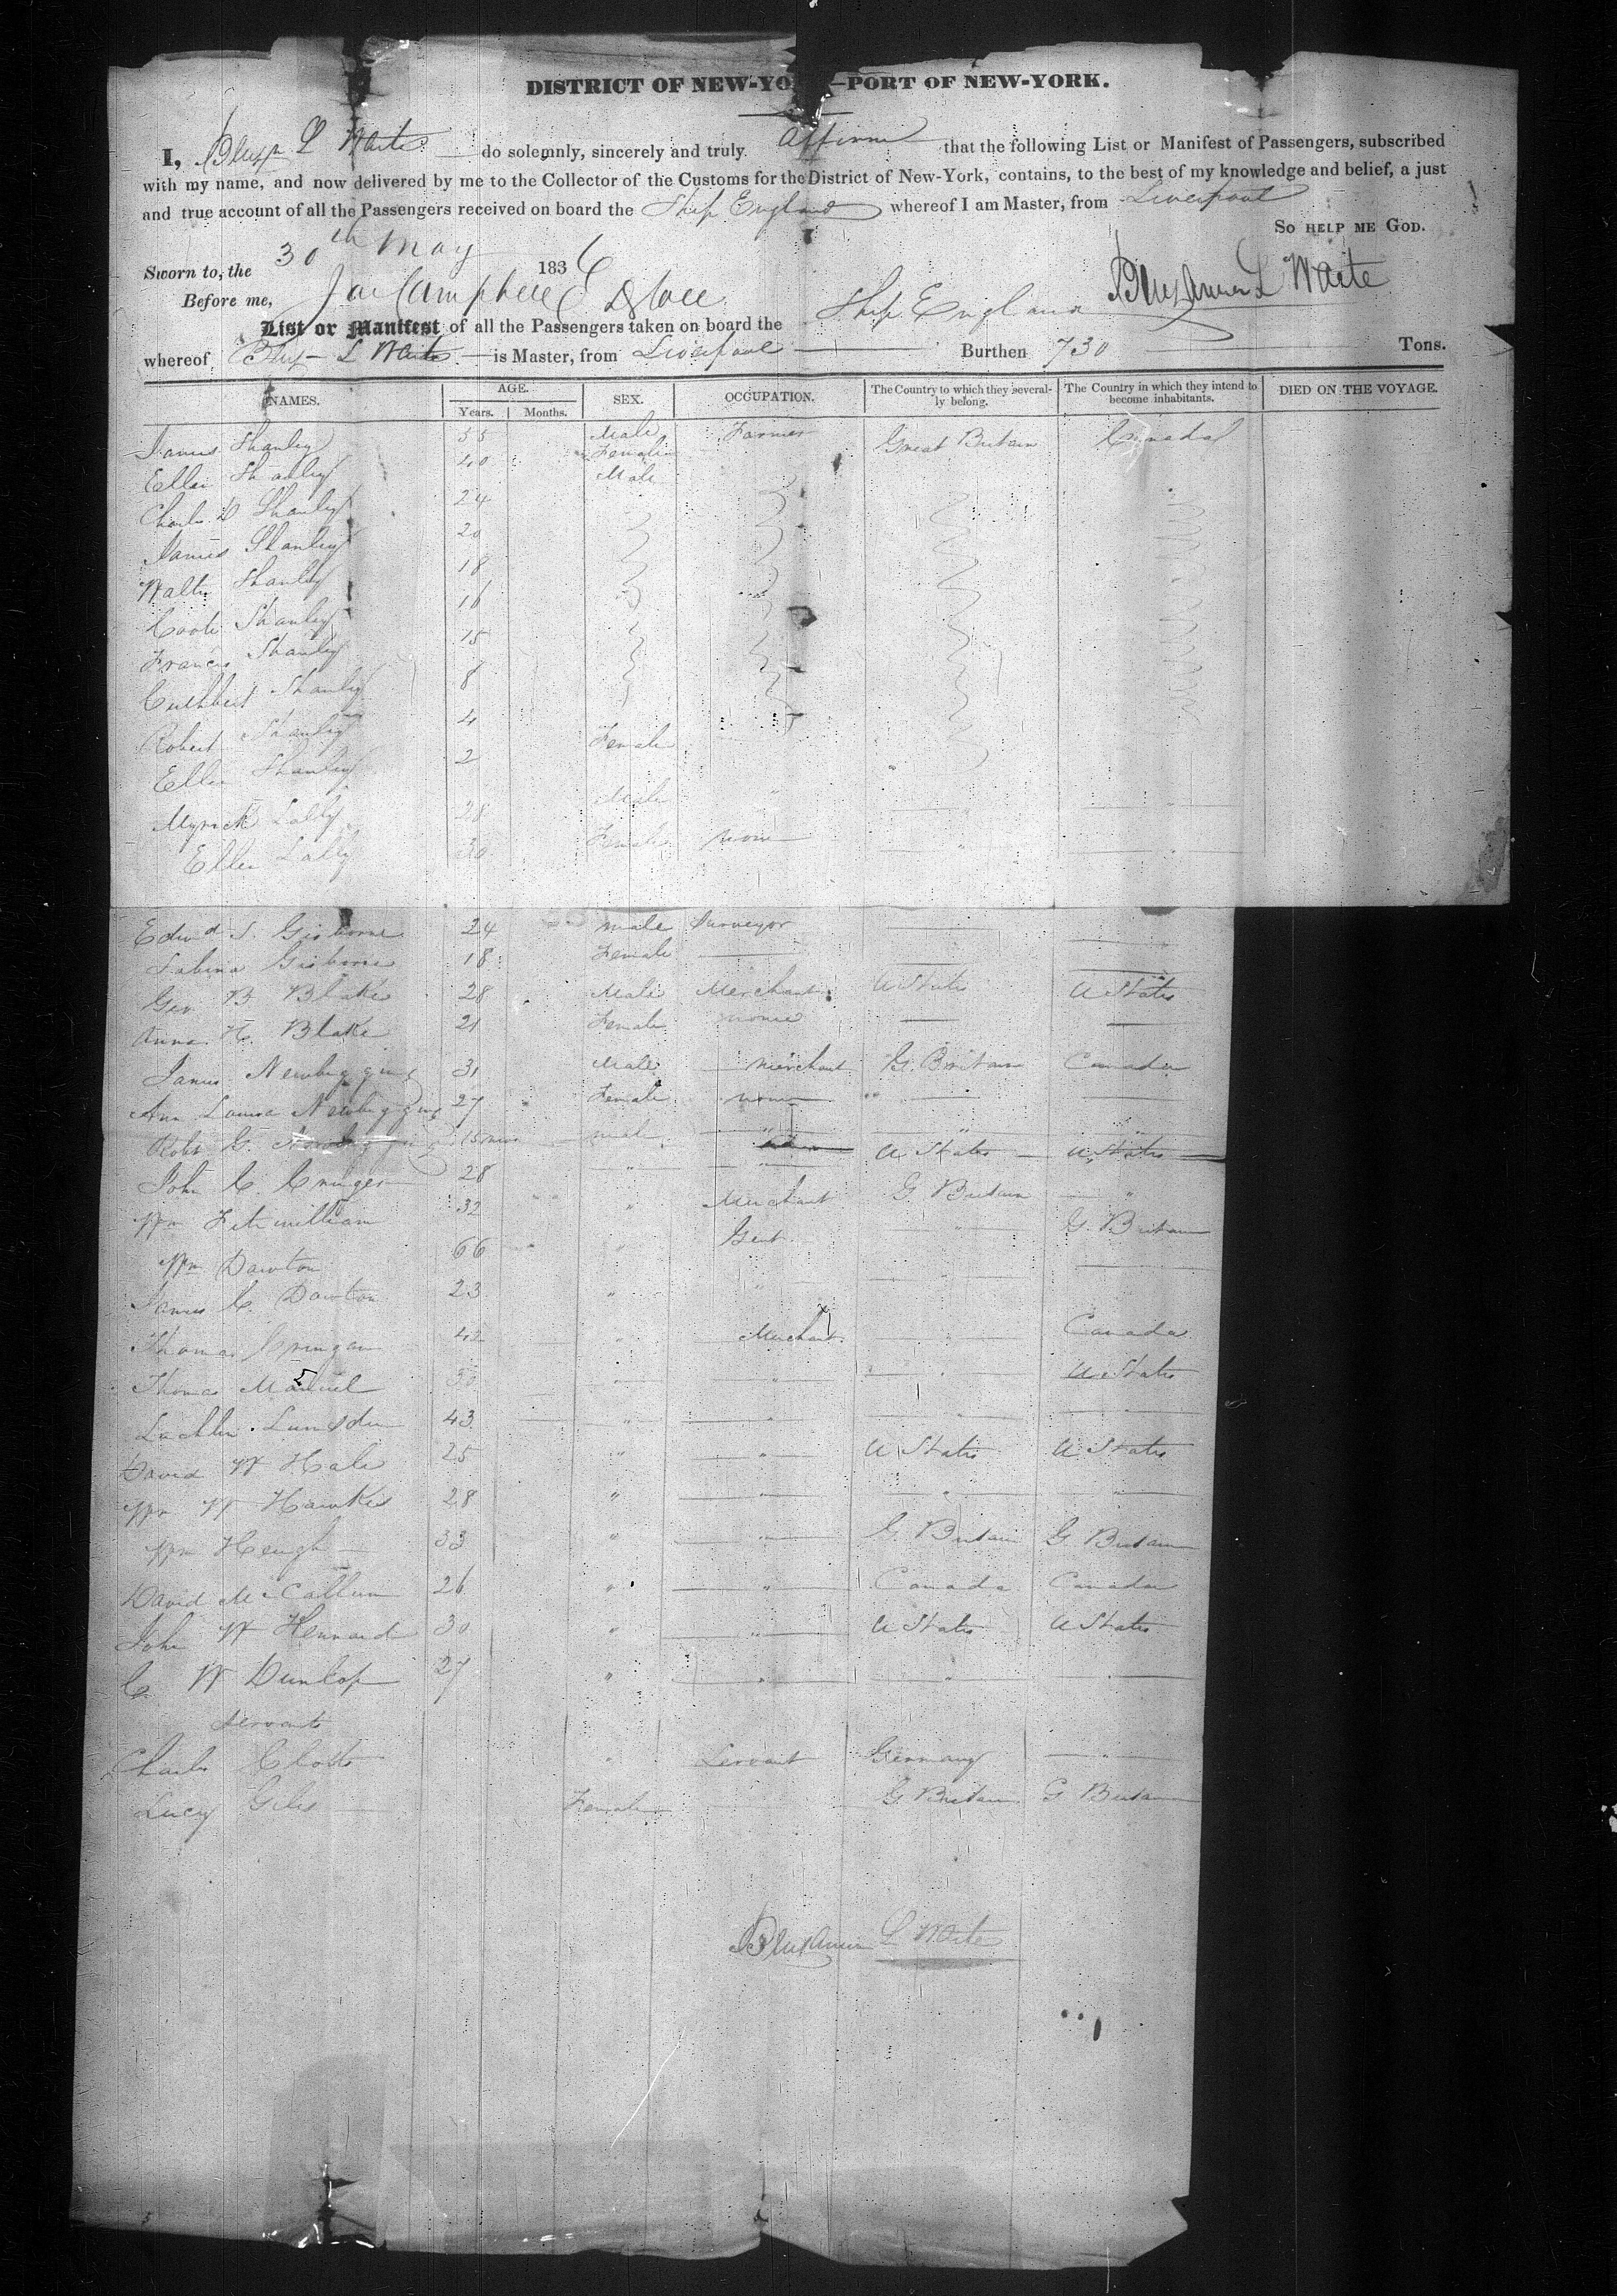 DISTRICT OF NEW-YO —PORT OF NEW-YORK.
I, Benjn L Waite do solemnly, sincerely and truly affirm that the following List or Manifest of Passengers, subscribed
with my name, and now delivered by me to the Collector of the Customs for the District of New-York, contains, to the best of my knowledge and belief, a just
and true account of all the Passengers received on board the Ship England whereof I am Master, from Liverpool
SO HELP ME GOD.
Sworn to, the 30th May 1836
Before me, Campbell Benjamin L Waite
List or Manifest of all the Passengers taken on board the Ship England
whereof Benj L Waite is Master, from Liverpool Burthen 730 Tons.
NAMES. AGE. SEX. OCCUPATION. The Country to which they severally belong. The Country in which they intend to become inhabitants. DIED ON THE VOYAGE.
Years. Months.
James Shanly 55 Male Farmer Great Britain Canada
Ellen Shanly 40 Female
Charles D Shanly 24 Male
James Shanly 20
Walter Shanly 18
Coote Shanly 16
Francis Shanly 15
Cuthbert Shanly 8
Robert Shanly 4
Ellen Shanly 2 Female
Lally 28 Male "
Ellen Lally 30 Female none " "
Edwd S. Gisborne 24 male Surveyor
Sabina Gisborne 18 Female
Geo B Blake 28 Male Merchant U States U States
Anna H. Blake 21 Female none
James Newbigging 31 Male Merchant G. Britain Canada
Ann Louisa Newbigging 27 Female none
Robt G. Newbigging 15 mos male " " "
John C. Cruger 28 " " U States U States
Wm Fitzwilliam 32 " Merchant G. Britain "
Wm Dawton 66 " Gent " G. Britain
James C. Dawton 23 " " "
Thomas 42 " Merchant " Canada
Thomas 30 " " " U States
Lumsden 43 " " " "
David W Hale 25 " " U States U States
Wm W Hawkes 28 " " " "
Wm Heugh 33 " " G. Britain G Britain
David McCallum 26 " " Canada Canada
John W Hennard 30 " " U States U States
C. W Dunlop 27 " " " "
Servants
Charles " Servant Germany "
Lucy Giles Female G. Britain G Britain
Benjamin L Waite